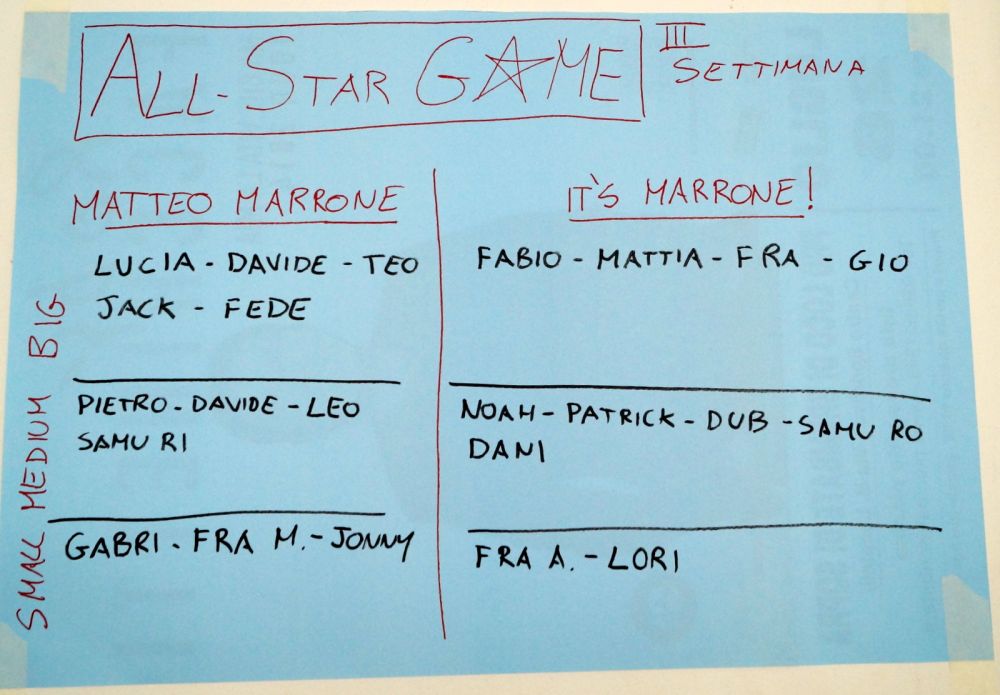 ALL-STAR GAME
III
SETTIMANA
MATTEO MARRONE
LUCIA - DAVIDE - TEO
JACK - FEDE
PIETRO - DAVIDE - LEO
SAMU RI
GABRI - FRA M. - JONNY
IT'S MARRONE!
FABIO - MATTIA - FRA - GIO
NOAH - PATRICK - DUB - SAMU RO
DANI
FRA A. - LORI
SMALL MEDIUM BIG